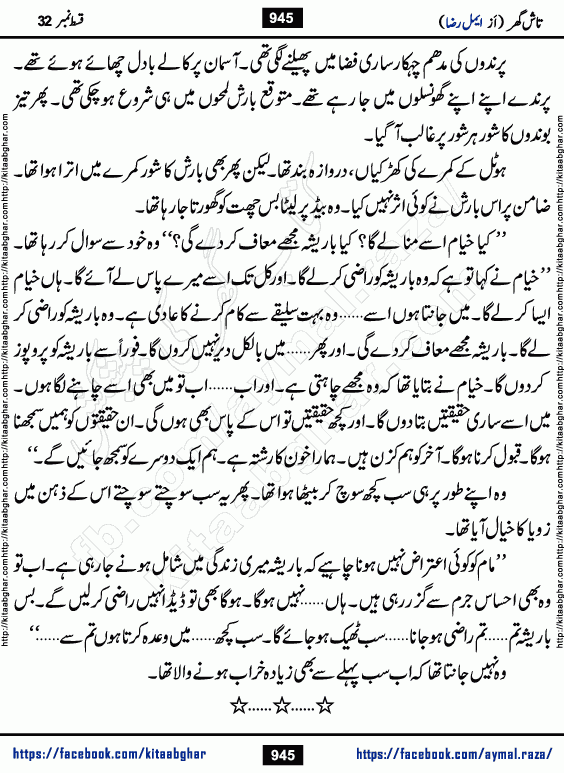 تاش گھر (از ایمل رضا) 945 قسط نمبر 32
پرندوں کی مدھم چہکار ساری فضا میں پھیلنے لگی تھی۔ آسمان پر کالے بادل چھائے ہوئے تھے۔
پرندے اپنے اپنے گھونسلوں میں جا رہے تھے۔ متوقع بارش لمحوں میں ہی شروع ہو چکی تھی۔ پھر تیز
بوندوں کا شور ہر شور پر غالب آ گیا۔
ہوٹل کے کمرے کی کھڑکیاں، دروازہ بند تھا۔ لیکن پھر بھی بارش کا شور کمرے میں اترا ہوا تھا۔
ضامن پر اس بارش نے کوئی اثر نہیں کیا۔ وہ بیڈ پر لیٹا بس چھت کو گھورتا جا رہا تھا۔
”کیا خیام اسے منا لے گا؟ کیا باریشہ مجھے معاف کر دے گی؟“ وہ خود سے سوال کر رہا تھا۔
”خیام نے کہا تو ہے کہ وہ باریشہ کو راضی کر لے گا۔ اور کل تک اسے میرے پاس لے آئے گا۔ ہاں خیام
ایسا کر لے گا۔ میں جانتا ہوں اسے......وہ بہت سلیقے سے کام کرنے کا عادی ہے۔ وہ باریشہ کو راضی کر
لے گا۔ باریشہ مجھے معاف کر دے گی۔ اور پھر......میں بالکل دیر نہیں کروں گا۔ فوراً سے باریشہ کو پروپوز
کر دوں گا۔ خیام نے بتایا تھا کہ وہ مجھے چاہتی ہے۔ اور اب......اب تو میں بھی اسے چاہنے لگا ہوں۔
میں اسے ساری حقیقتیں بتا دوں گا۔ اور کچھ حقیقتیں تو اس کے پاس بھی ہوں گی۔ ان حقیقتوں کو ہمیں سمجھنا
ہوگا۔ قبول کرنا ہوگا۔ آخر کو ہم کزن ہیں۔ ہمارا خون کا رشتہ ہے۔ ہم ایک دوسرے کو سمجھ جائیں گے۔“
وہ اپنے طور پر ہی سب کچھ سوچ کر بیٹھا ہوا تھا۔ پھر یہ سب سوچتے سوچتے اس کے ذہن میں
زویا کا خیال آیا تھا۔
”مام کو کوئی اعتراض نہیں ہونا چاہیے کہ باریشہ میری زندگی میں شامل ہونے جا رہی ہے۔ اب تو
وہ بھی احساس جرم سے گزر رہی ہیں۔ ہاں......نہیں ہوگا۔ ہوگا بھی تو ڈیڈ انہیں راضی کر لیں گے۔ بس
باریشہ تم......تم راضی ہو جانا......سب ٹھیک ہو جائے گا۔ سب کچھ......میں وعدہ کرتا ہوں تم سے......“
وہ نہیں جانتا تھا کہ اب سب پہلے سے بھی زیادہ خراب ہونے والا تھا۔
☆......☆......☆
https://facebook.com/kitaabghar 945 https://facebook.com/aymal.raza/
http://kitaabghar.com
fb.com/aymal.raza1
kitaabghar.com